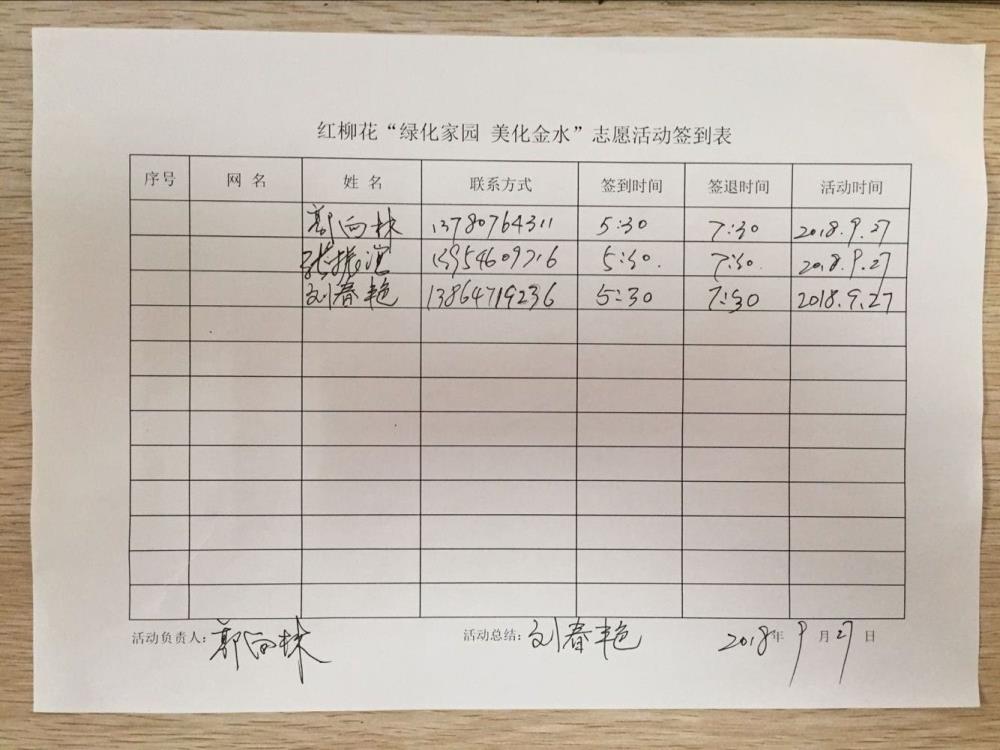 红柳花“绿化家园 美化金水”志愿活动签到表
序号 网 名 姓 名 联系方式 签到时间 签退时间 活动时间
郭向林 13780764311 5:30 7:30 2018.9.27
张振 5:30. 7:30. 2018.9.27
刘春艳 13864719236 5:30 7:30 2018.9.27
活动负责人:郭向林 活动总结:刘春艳 2018年9月27日